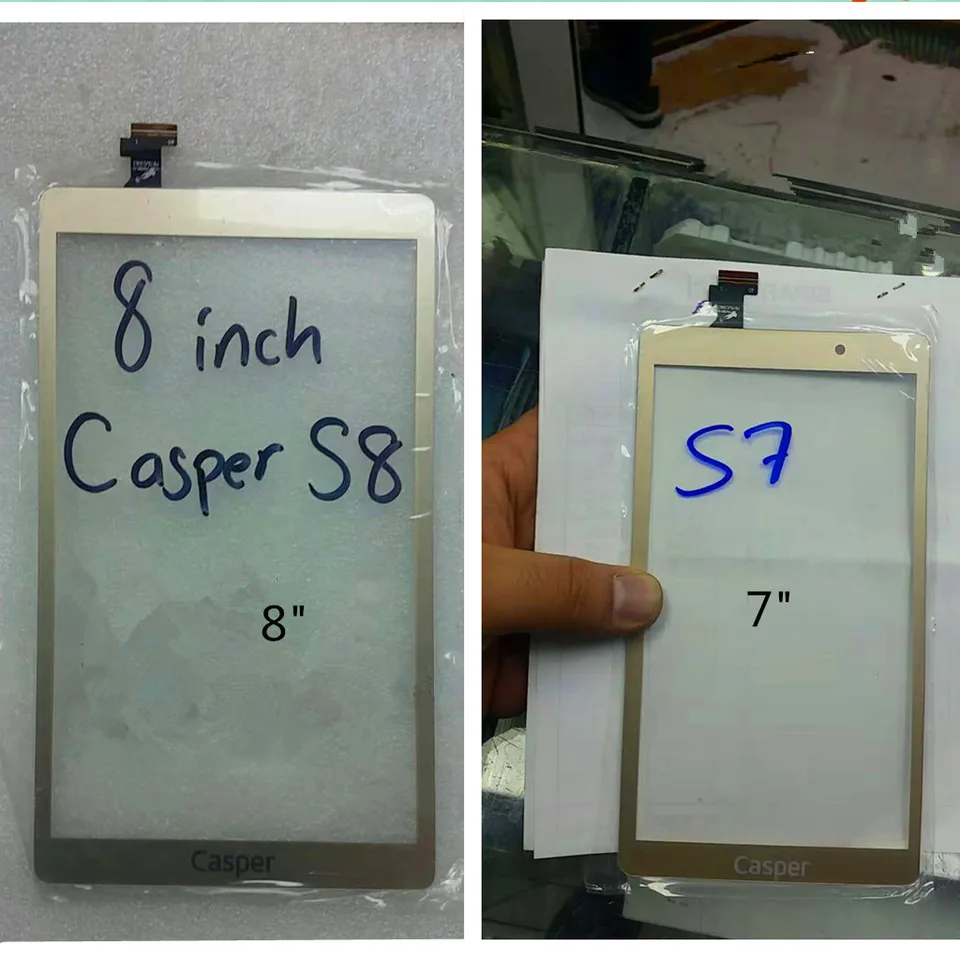 8 inch
Casper S8
8"
Casper
S7
7"
Casper